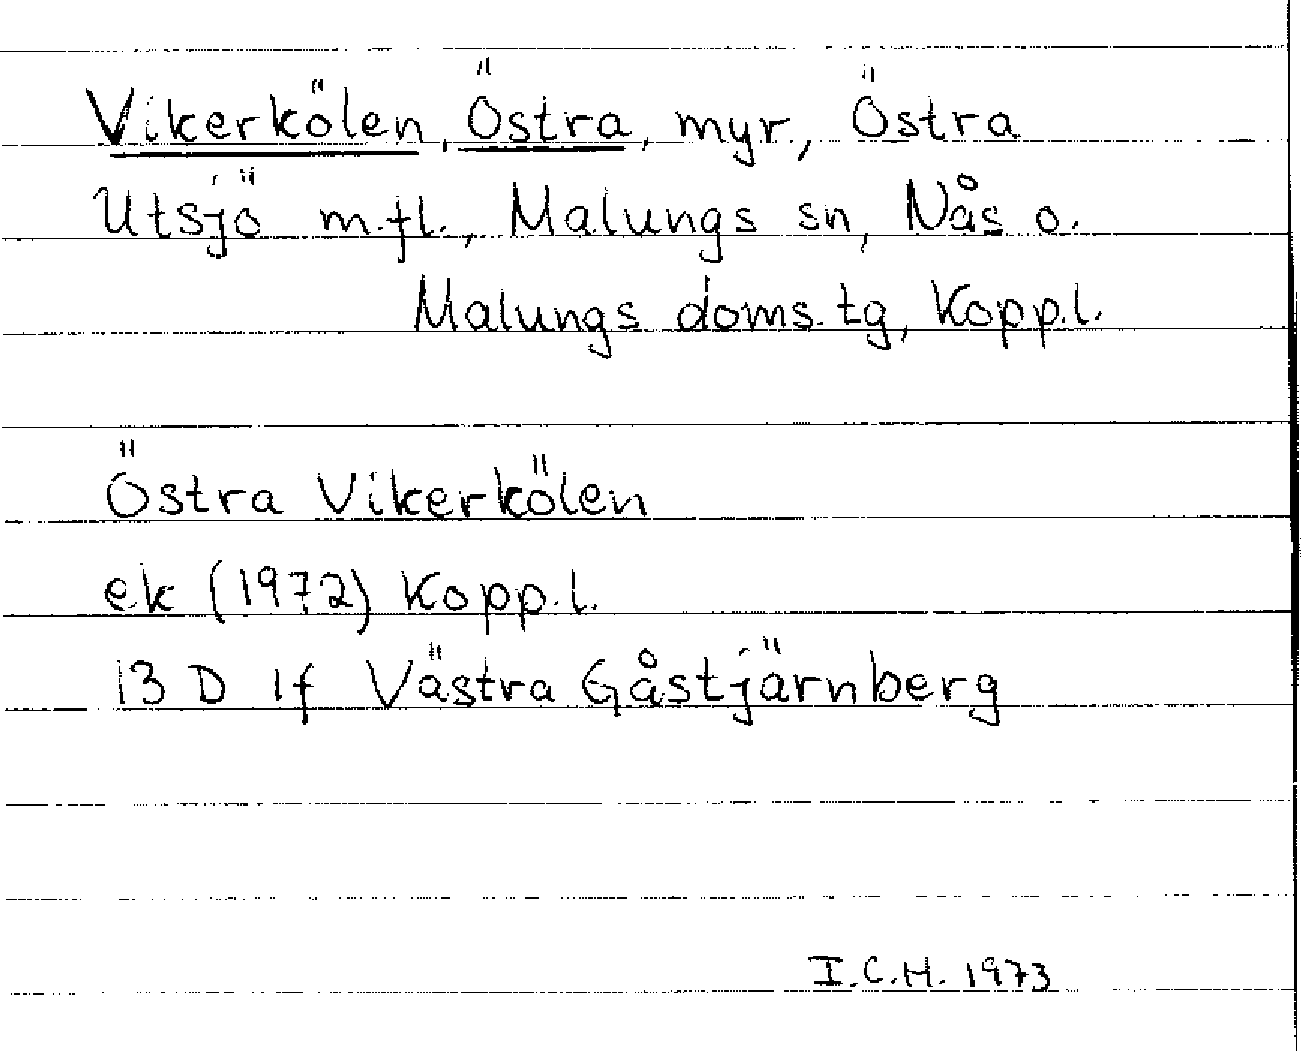 Vikerkölen, Östra, myr, Östra
Utsjö m.fl., Malungs sn, Nås o.
Malungs doms.tg, Kopp.l.
Östra Vikerkölen
ek (1972) Kopp.l.
13 D 1f Västra Gåstjärnberg
I.C.H. 1973